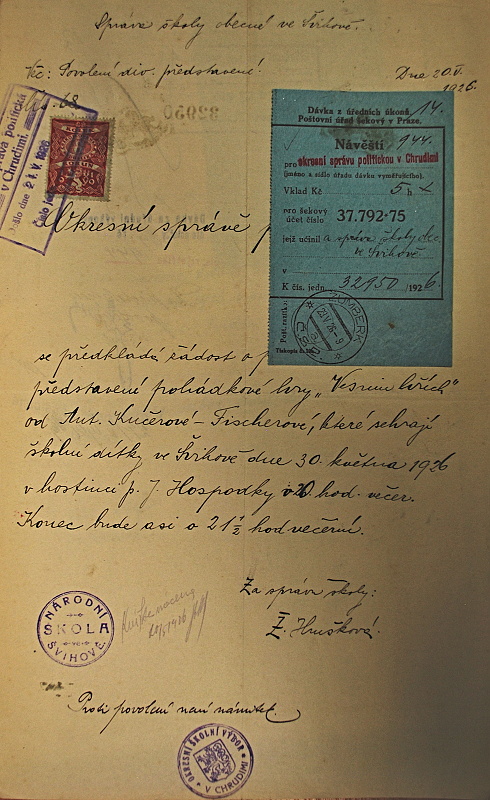 Správa školy obecné ve Švihově.
Věc: Povolení div. představení.
Dne 20.V. 1926.
32950
správa politická
v Chrudimi
došlo dne 21.V.1926
Číslo
Dávka z úředních úkonů. 14.
Poštovní úřad šekový v Praze.
Návěští 944.
pro okresní správu politickou v Chrudimi
(jméno a sídlo úřadu dávku vyměřujícího).
Vklad Kč 5 h
pro šekový
účet číslo 37.792-75
jejž učinil a správa školy obec.
ve Švihově
v
K čís. jedn. 32950/1926.
Pošt. razítko:
ŽUMBERK
22.V.26-9
Č.S.R.
Tiskopis č.
Okresní správě
se předkládá žádost o
představení pohádkové hry „Vesnin hřích"
od Ant. Kučerové-Fischerové, které sehrají
školní dítky ve Švihově dne 30. května 1926
v hostinci p. J. Hospodky v 20 hod. večer.
Konec bude asi o 21 1/2 hod večerní.
Za správu školy:
Ž. Hrušková.
NÁRODNÍ
ŠKOLA
VE
ŠVIHOVĚ
Proti povolení není námitek.
OKRESNÍ ŠKOLNÍ VÝBOR
V CHRUDIMI